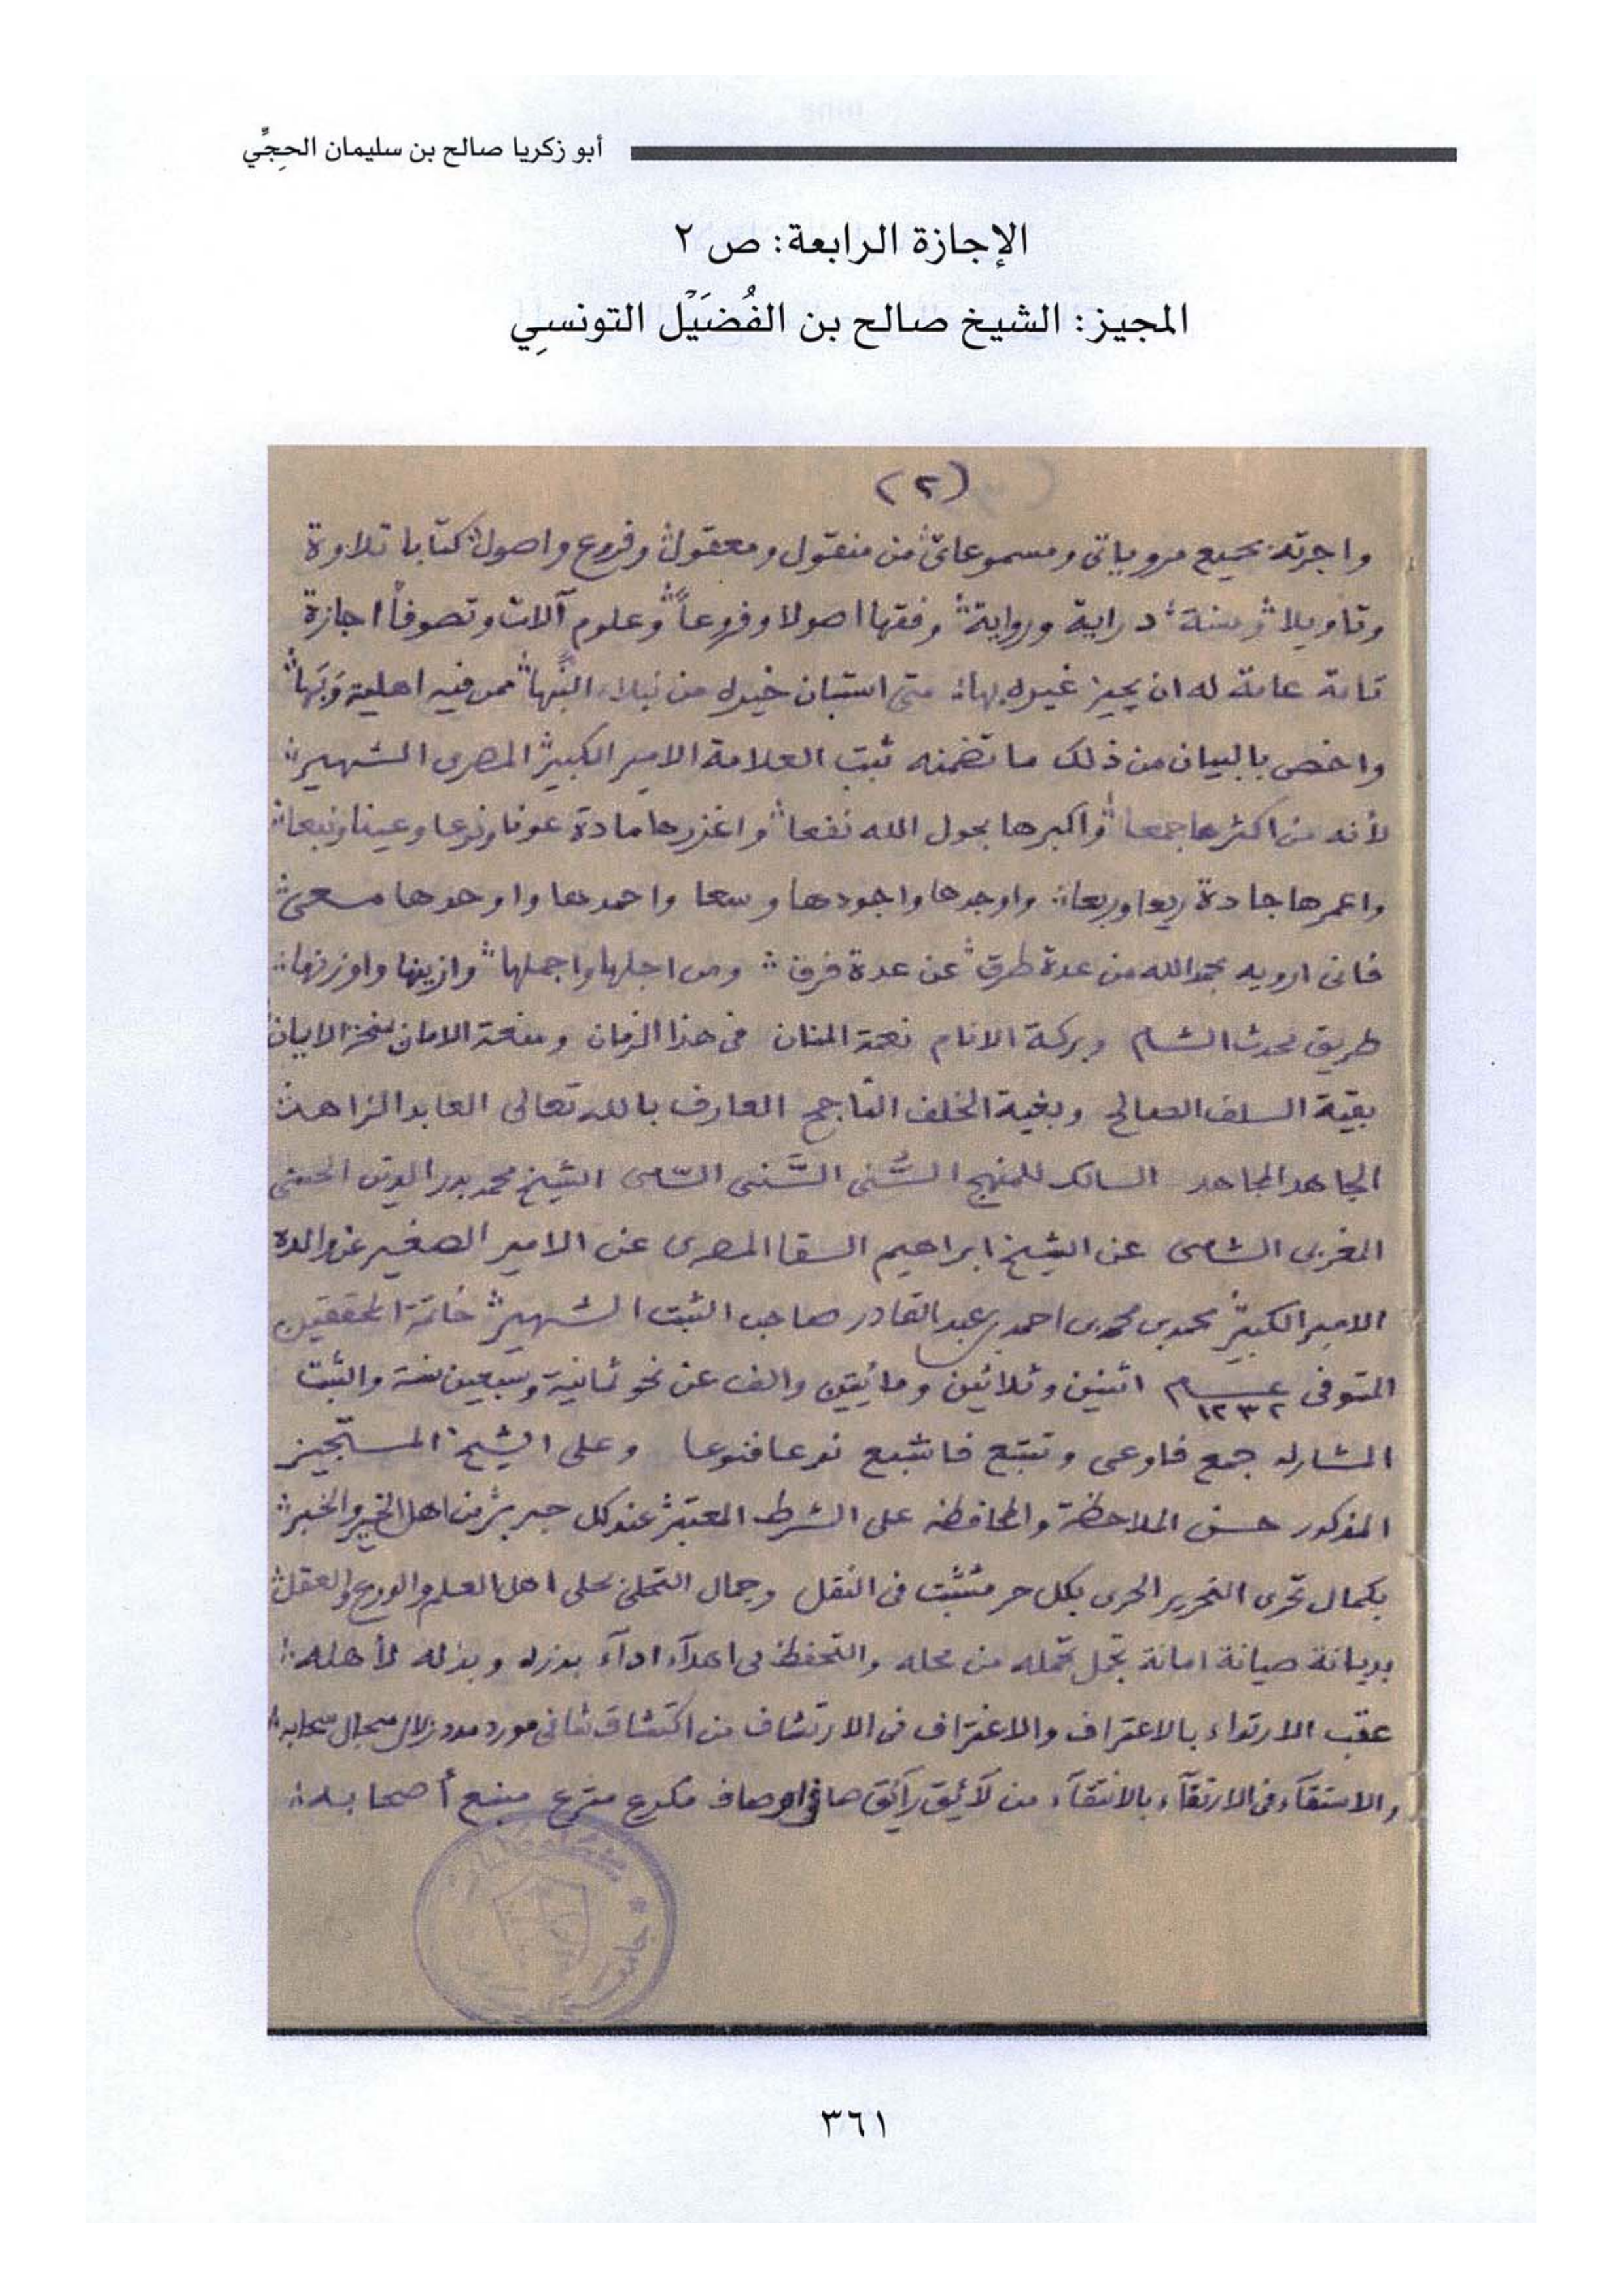 أبو زكريا صالح بن سليمان الحِجِّي
الإجازة الرابعة: ص ٢
المجيز: الشيخ صالح بن الفُضَيْل التونسِي
(٢)
واجزته بجميع مروياتى ومسموعاتى من منقول ومعقول وفروع واصول كتابا تلاوة
وتأويلا وسنة دراية ورواية وفقها اصولا وفروعاً وعلوم آلات وتصوفاً اجازة
تامة عامة له ان يجيز غيره بها متى استبان خيره من نبلاء النُّبها ممن فيه اهلية وَبَها
واخص بالبيان من ذلك ما تضمنه ثبت العلامة الامير الكبير المصرى الشهير
لأنه من اكثرها جمعا واكبرها بحول الله نفعا واغزرها مادة عونا ونوعا وعينا ونبعا
واعمرها جادة ريعا وربعا واوجدها واجودها وسعا واحمدها واوحدها مسعى
فانى ارويه بحمد الله من عدة طرق عن عدة فرق ومن اجلها واجملها وازينها واوزنها
طريق محدث الشام وبركة الانام نعمة المنان فى هذا الزمان ومنعة الامان
بقية السلف الصالح وبغية الخلف الناجح العارف بالله تعالى العابد الزاهد
الجاهد المجاهد السالك للمنهج السُّنى السَّنى السّامى الشيخ محمد بدر الدين الحسنى
المغربى الشامى عن الشيخ ابراهيم السقا المصرى عن الامير الصغير عن والده
الامير الكبير محمد بن محمد بن احمد بن عبد القادر صاحب الثبت الشهير خاتمة المحققين
المتوفى عام ١٢٣٢ اثنين وثلاثين ومائيتين والف عن نحو ثمانية وسبعين سنة والثبت
المشار له جمع فاوعى وتتبع فاشبع نوعا فنوعا وعلى الشيخ المستجيز
المذكور حسن الملاحظة والمحافظة على الشرط المعتبر عند كل حبر بر من اهل الخير والخبر
بكمال تحرى التحرير الحرى بكل حر مثبت فى النقل وجمال التحلى بحلى اهل العلم والورع والعقل
بديانة صيانة امانة تحمل تحمله من محله والتحفظ فى اهدآء ادآء بذره وبذله لأهله
عقب الارتواء بالاعتراف والاغتراف فى الارتشاف من مورد مدد زلال سجال سحابه
والاستقآء فى الارتقآء بالانتقآء من لآئق رآئق صافى مكرع مترع منبع أصحابه
٣٦١